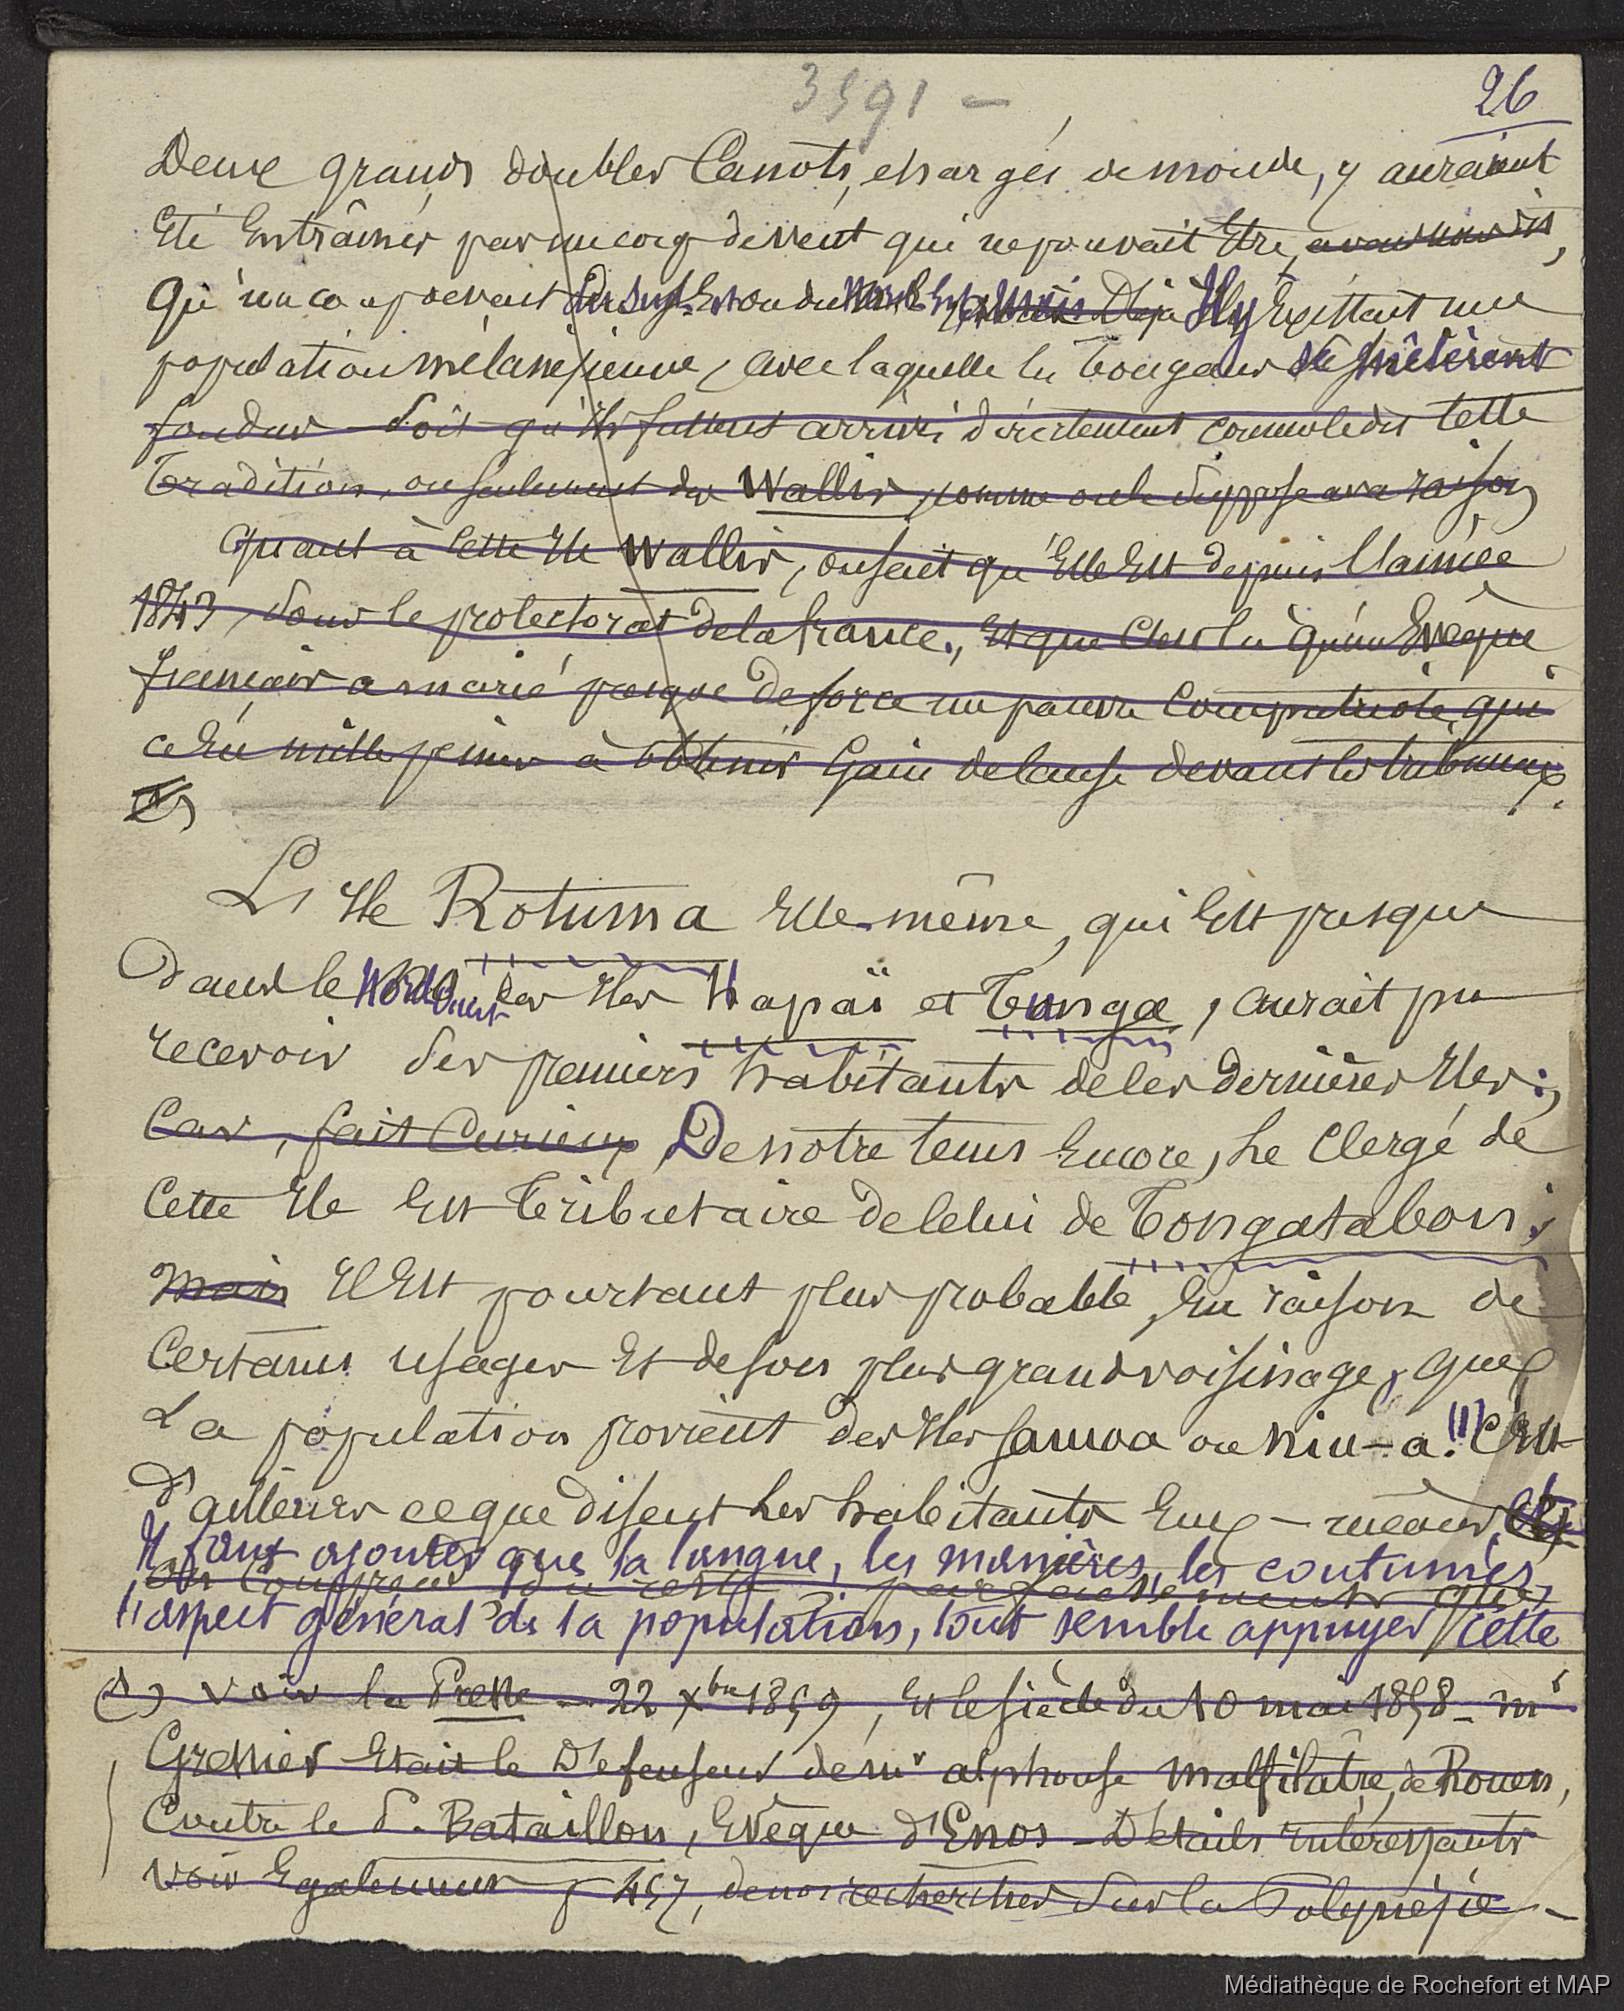 3591 -
26
Deux grands doubles Canots, chargés de monde, y auraient
Eté Entraînés par un coup de vent qui ne pouvait Etre, avons nous dit,
Qu'un coup de vent du Sud-Est ou du Nord Est, mais Déjà Il y Existait une
population mélanésienne, avec laquelle les Tongans se mêlèrent
fondus soit qu'ils fussent arrivés directement comme le dit cette
Tradition, ou seulement des Wallis, comme on le suppose avec raison
Quant à cette Ile Wallis, on sait qu'Elle Est depuis l'année
1843, sous le protectorat de la france, Et que C'est là qu'un Evêque
français a marié presque de force un pauvre Compatriote, qui
a Eu mille peines à obtenir Gain de Cause devant les tribunaux.
(1)
L'Ile Rotuma Elle-même, qui Est presque
dans le Nord ouest des Iles Hapaï et Tunga, aurait pu
recevoir ses premiers habitants de ces dernières Iles;
Car, fait Curieux, De notre tems Encore, Le Clergé de
Cette Ile Est Tributaire de Celui de Tongatabou;
Mais Il Est pourtant plus probable, En raison de
Certains usages Et de son plus grand voisinage, que
La population provient des Iles Samoa ou Niu-a. C'Est
d'ailleurs ce que disent Les habitants Eux-mêmes
Il faut ajouter que la langue, les manières, les coutumes,
On Comprend du reste parfaitement que
l'aspect général de la population, tout semble appuyer cette
(1) Voir la Presse - 22 Xbre 1859, Et le siècle du 10 mai 1858 - Mr
Gressier Etait le Défenseur de Mr alphonse Malfilâtre, de Rouen,
Contre le P. Bataillon, Evêque d'Enos - Détails Intéressants
Voir Egalement p 457, de nos recherches sur la Polynésie -
Médiathèque de Rochefort et MAP